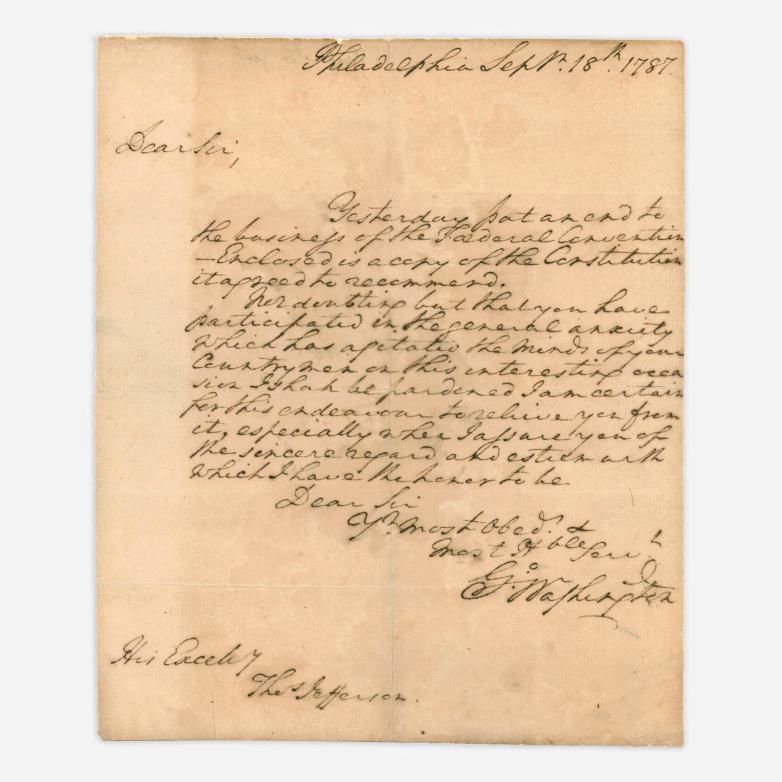 Philadelphia Sepr. 18th. 1787.
Dear Sir,
Yesterday put an end to
the business of the Fœderal Convention
—Enclosed is a copy of the Constitution
it agreed to recommend.
Not doubting but that you have
participated in the general anxiety
which has agitated the minds of your
Countrymen on this interesting occa
sion I shall be pardoned I am certain
for this endeavour to relieve you from
it, especially when I assure you of
the sincere regard and esteem with
which I have the honor to be
Dear Sir
Yr. most Obedt. &
most Hble Servt
Go: Washington
His Excely
Thos Jefferson.